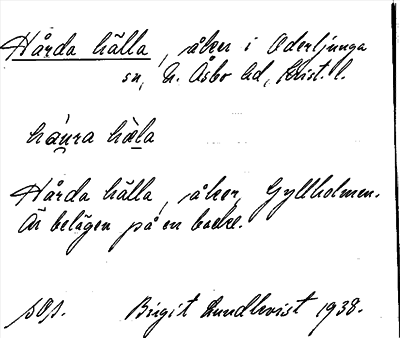 Hårda hälla, åker i Oderljunga
sn, N. Åsbo hd, Krist. l.
Hårda hälla, åker, Gyllholmen.
Är belägen på en backe.
Birgit Lundkvist 1938.